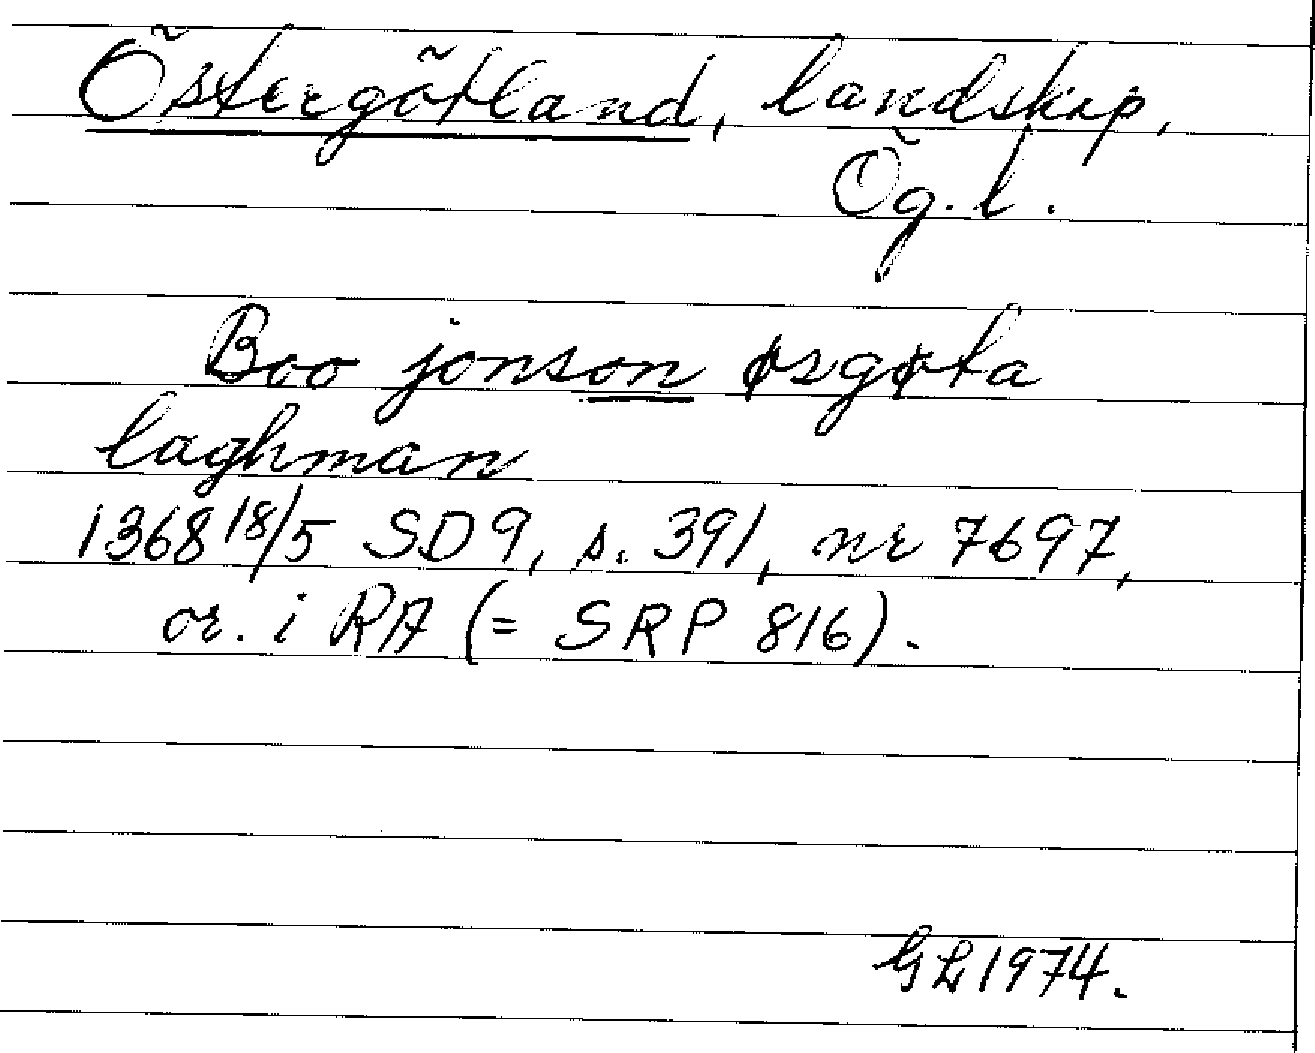 Östergötland, landskap,
Ög. l.
Boo jonson øsgøta
laghman
1368 18/5 SD 9, s. 391, nr 7697,
or. i RA (= SRP 816).
GL 1974.